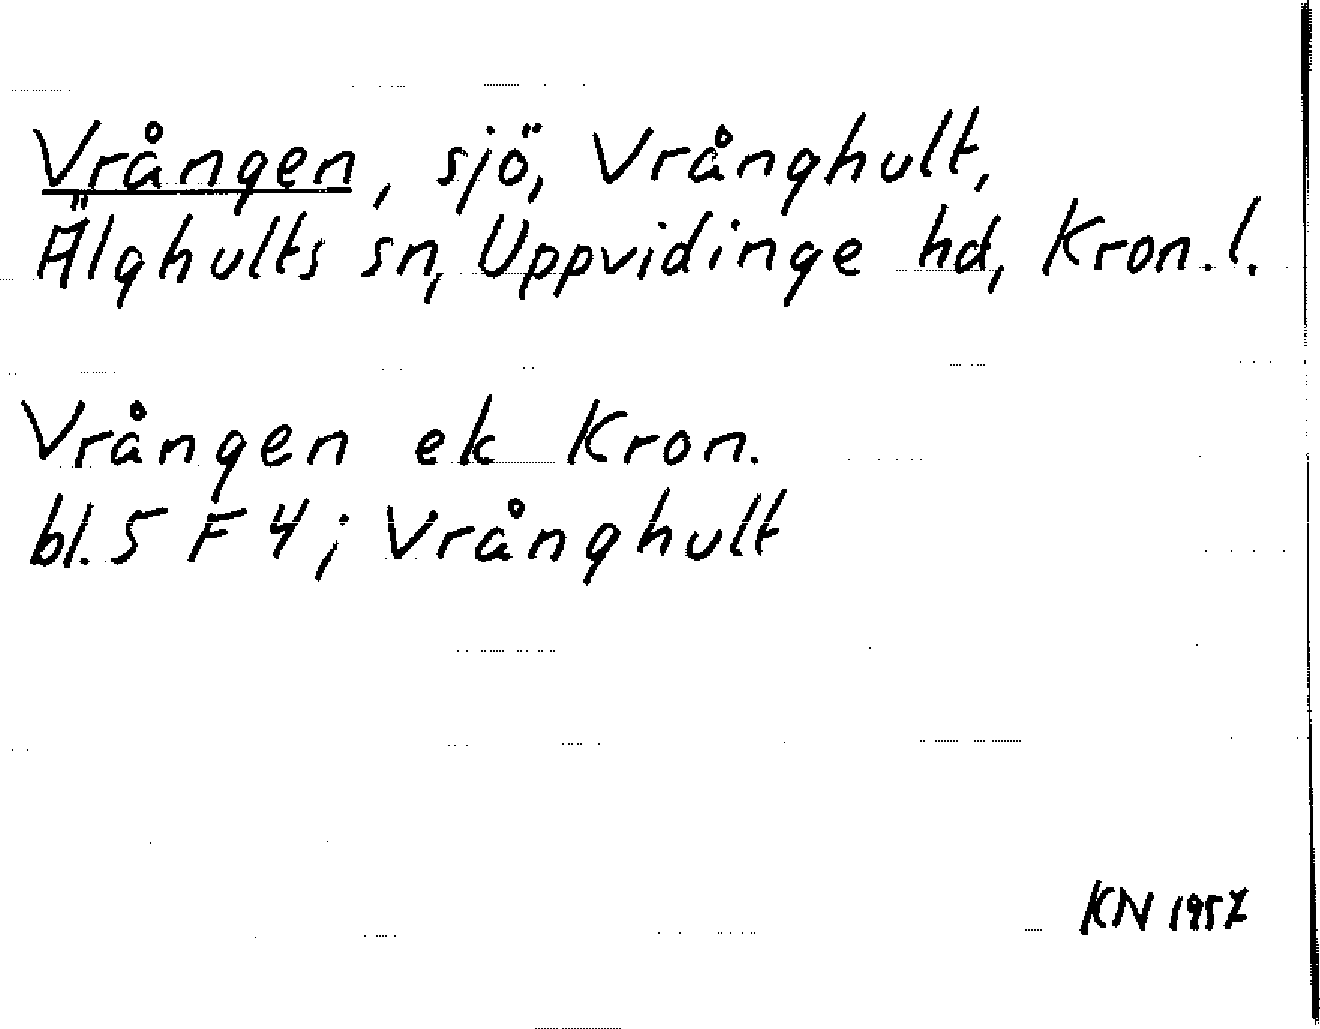 Vrången, sjö, Vrånghult,
Älghults sn, Uppvidinge hd, Kron.l.
Vrången ek Kron.
bl. 5 F 4; Vrånghult
KN 1957